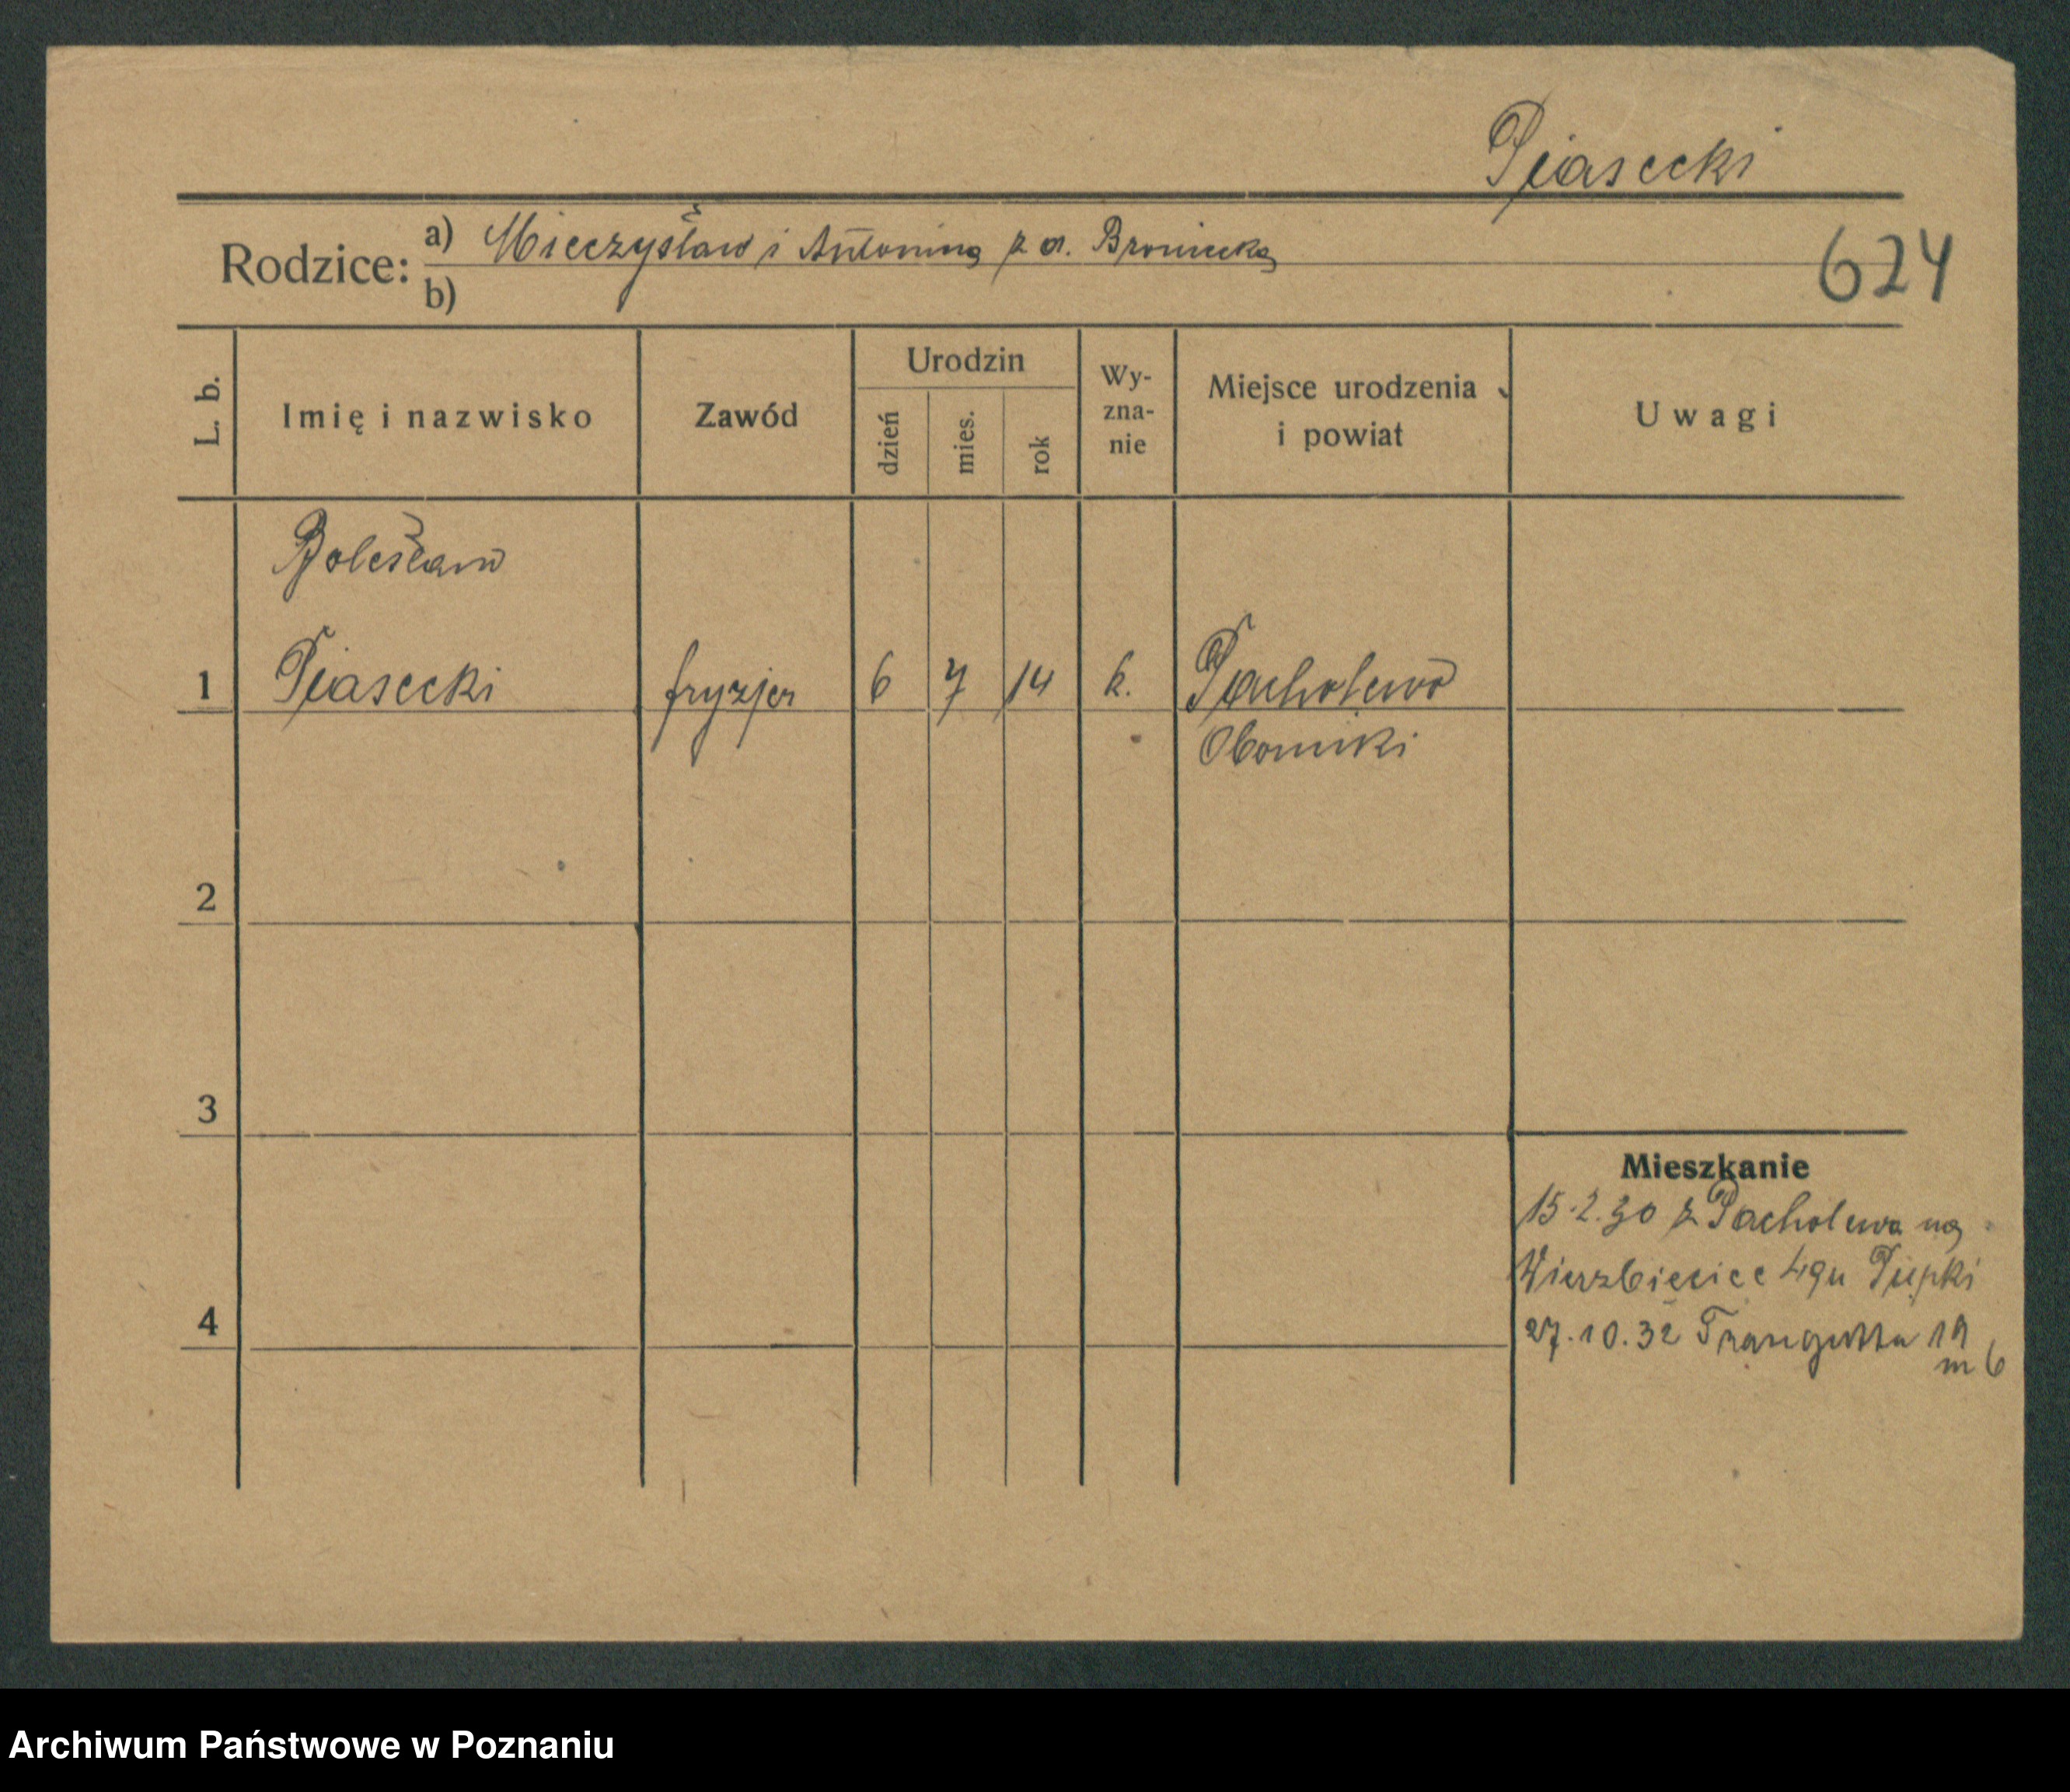 Piasecki
Rodzice: a) Mieczysław i Antonina z d. Broniecka
b)
624
L. b.
Imię i nazwisko
Zawód
Urodzin
dzień
mies.
rok
Wy-
zna-
nie
Miejsce urodzenia
i powiat
Uwagi
Bolesław
1 Piasecki fryzjer 6 7 14 k. Pacholewo
Oborniki
2
3
4
Mieszkanie
15.2.30 z Pacholewa na
Wierzbięcice 49u
27.10.32 Traugutta 19
m 6
Archiwum Państwowe w Poznaniu